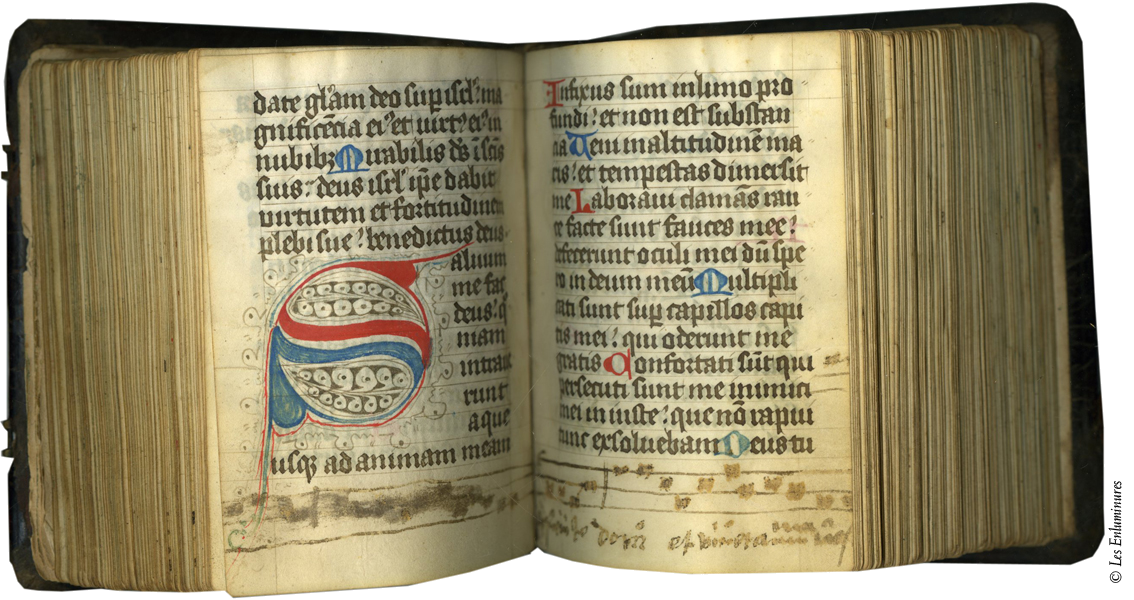 date gl'am deo sup isrl' : ma
gnificēcia ei' et uirt' ei' in
nubibz Mirabilis ds ī scīs
suis : deus isrl' ip̄e dabit
virtutem et fortitudinem
plebi sue : benedictus deus.
Saluum
me fac
deus : q̄
niam
intraue
runt
aque
usqz ad animam meam
Infixus sum in limo pro
fundi : et non est substan
cia Ueni in altitudinē ma
ris : et tempestas dimersit
me Laboraui clamās rau
ce facte sunt fauces mee :
defecerunt oculi mei dū spe
ro in deum meū Multipli
cati sunt sup capillos capi
tis mei : qui oderunt me
gratis Confortati sūt qui
persecuti sunt me inimici
mei in iuste : que nō rapui
tunc exsoluebam Deus tu
© Les Enluminures